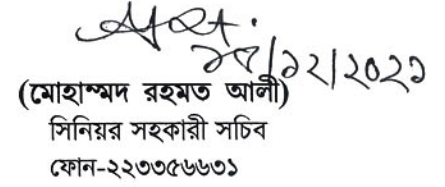 ২৮/১২/২০২১
(মোহাম্মদ রহমত আলী)
সিনিয়র সহকারী সচিব
ফোন-২২৩৩৫৬৬৩১